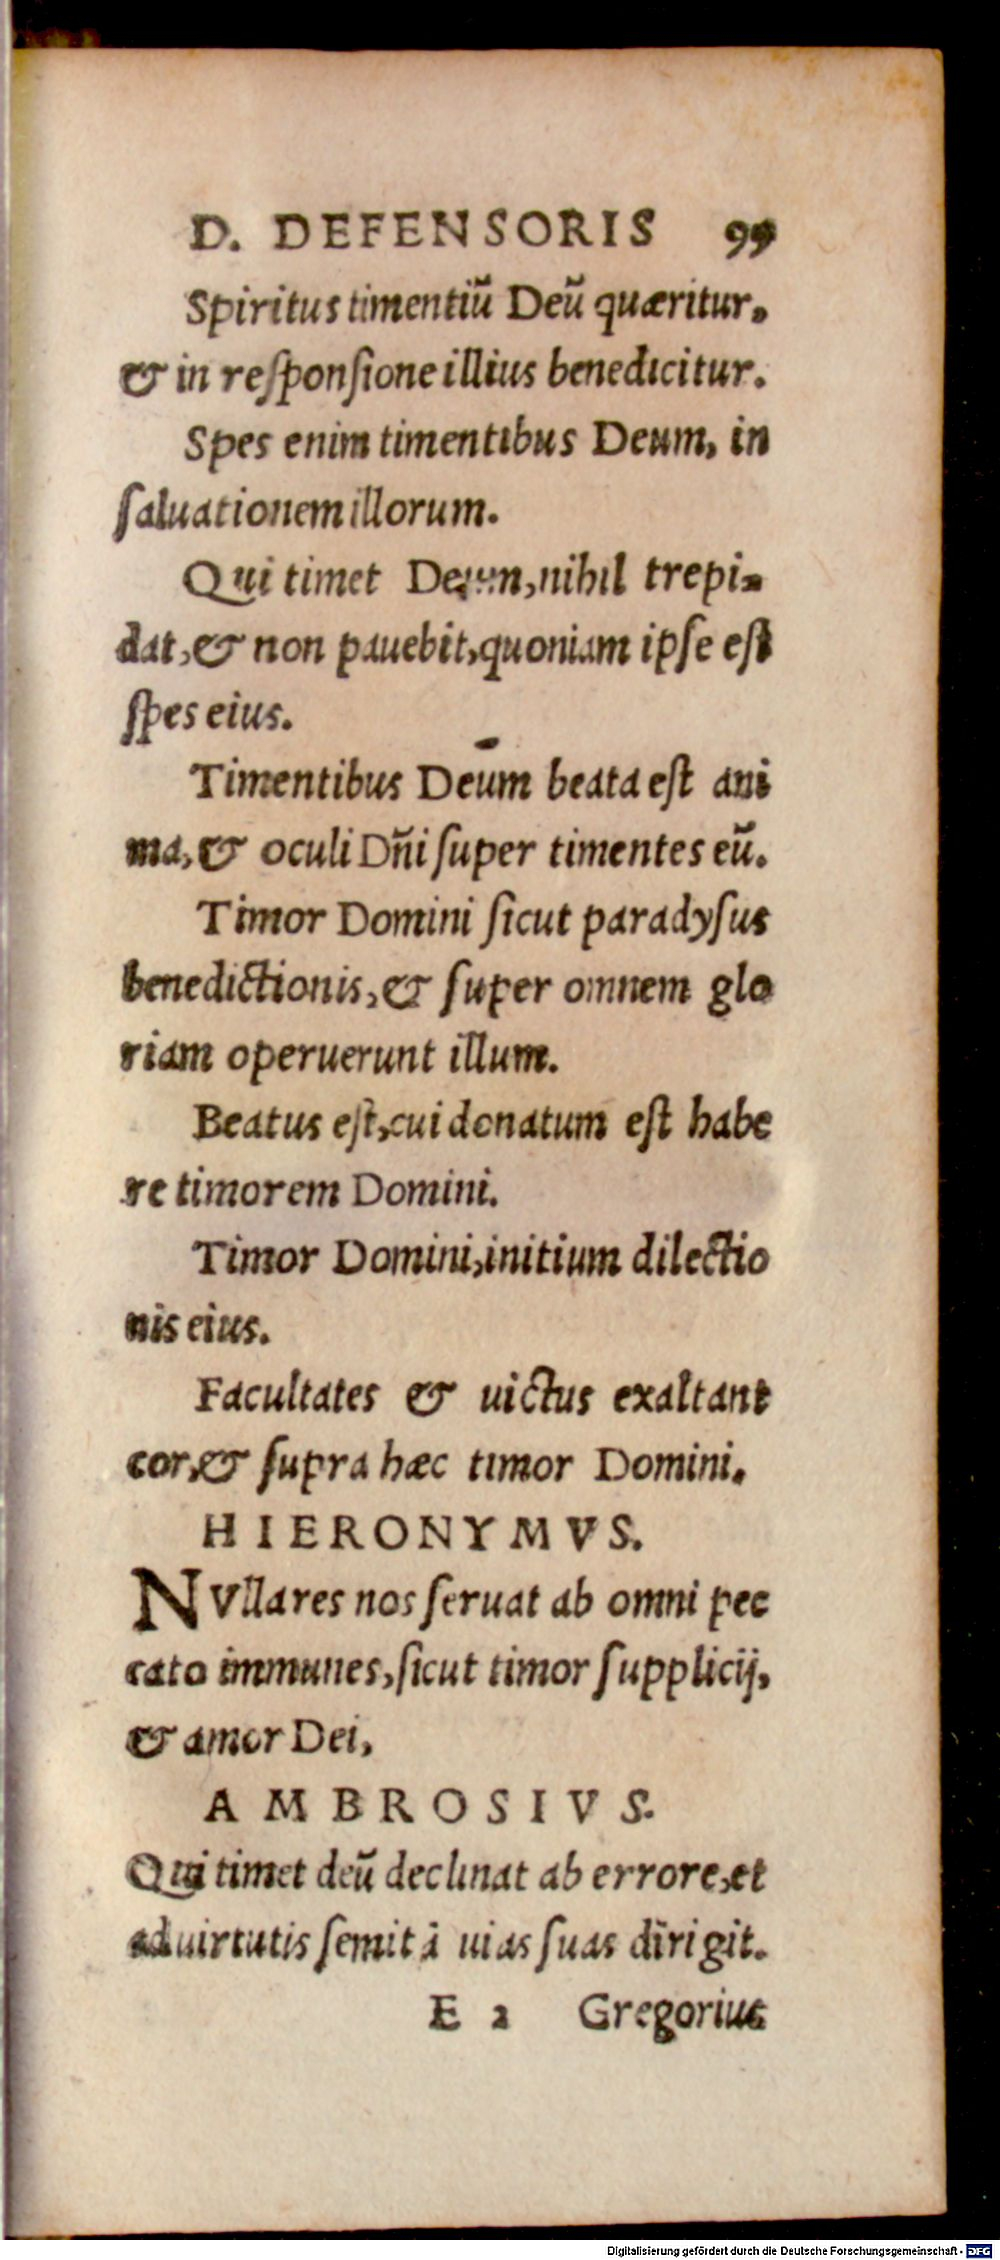 D. DEFENSORIS 99
Spiritus timentiũ Deũ quæritur,
& in reſponſione illius benedicitur.
Spes enim timentibus Deum, in
ſaluationem illorum.
Qui timet Deum, nihil trepi-
dat, & non pauebit, quoniam ipſe eſt
ſpes eius.
Timentibus Deum beata eſt ani
ma, & oculi Dñi ſuper timentes eũ.
Timor Domini ſicut paradyſus
benedictionis, & ſuper omnem glo
riam operuerunt illum.
Beatus eſt, cui donatum eſt habe
re timorem Domini.
Timor Domini, initium dilectio
nis eius.
Facultates & uictus exaltant
cor, & ſupra hæc timor Domini.
HIERONYMVS.
NVlla res nos ſeruat ab omni pec
cato immunes, ſicut timor ſupplicij,
& amor Dei,
AMBROSIVS.
Qui timet deũ declinat ab errore, et
ad uirtutis ſemitã uias ſuas dirigit.
E 2 Gregorius
Digitalisierung gefördert durch die Deutsche Forschungsgemeinschaft - DFG